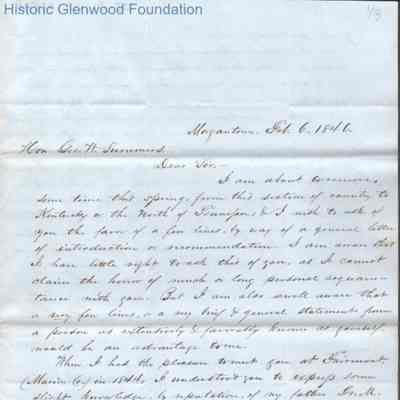 Historic Glenwood Foundation
1/3
Morgantown, Feb. 6, 1846.
Hon Geo. W. Summers
Dear Sir,—
I am about to remove,
some time this Spring, from this section of country to
Kentucky or the North of Tennessee, & I wish to ask of
you the favor of a few lines, by way of a general letter
of introduction or recommendation. I am aware that
I have little right to ask this of you, as I cannot
claim the honor of much or long personal acquain-
tance with you. But I am also well aware that
a very few lines, or a very brief & general statement from
a person as extensively & favorably known as yourself
would be an advantage to me.
When I had the pleasure to meet you at Fairmont,
(Marion Co.) in 1844, I understood you to express some
slight knowledge, by reputation, of my father